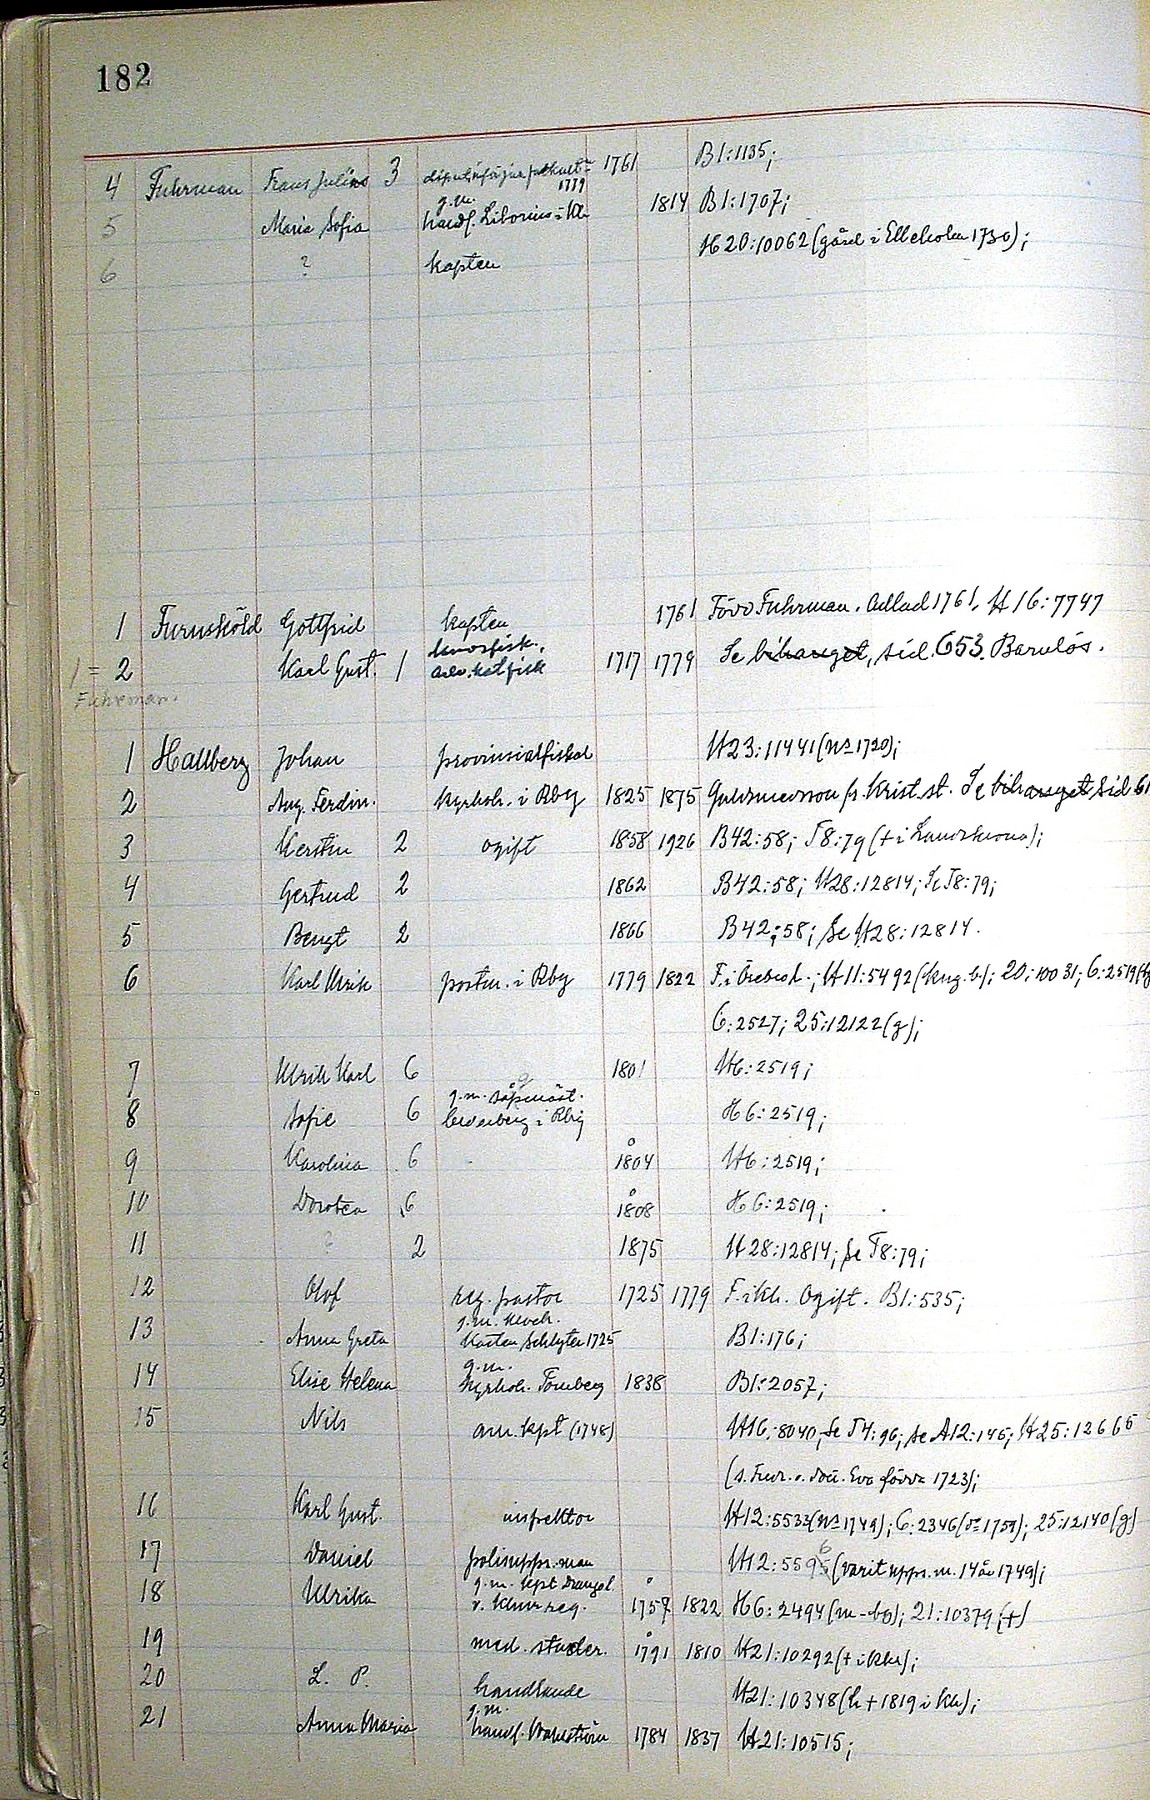 182
4 Fuhrman Frans Julius 3 1761 B1:1135;
1779
g.m.
5 Maria Sofia handl. Liborius i Kh 1814 B1:1707;
6 ? kapten H20:10062 (gård i Elleholm 1730);
1 Furusköld Gottfrid kapten 1761 Förr Fuhrman. Adlad 1761. H16:7747
1 = 2 Karl Gust. 1 adv.katfisk 1717 1779 Se bihanget, sid. 653. Barnlös.
Fuhrman.
1 Hallberg Johan provinsialfiskal H23:11441 (nr 1720);
2 Aug. Ferdin. kyrkoh. i Rby 1825 1875 Guldsmedsson fr. Krist.st. Se bihanget, sid 61
3 Kerstin 2 ogift 1858 1926 B42:58; T8:79 († i Landskrona);
4 Gertrud 2 1862 B42:58; H28:12814; Se T8:79;
5 Bengt 2 1866 B42:58; Se H28:12814.
6 Karl Ulrik postm. i Rby 1779 1822 F. i Örebro l.; H11:5492 (kng. b); 20:10031; 6:2519
6:2527; 25:12122 (g);
7 Ulrik Karl 6 1801 H6:2519;
g.m.
8 Sofie 6 i Rby H6:2519;
9 Karolina 6 1804 H6:2519;
10 Dorotea 6 1808 H6:2519;
11 ? 2 1875 H28:12814; Se T8:79;
12 Olof reg. pastor 1725 1779 F. i Kh. Ogift. B1:535;
g.m. klock.
13 Anna Greta Karten Schlyter 1725 B1:176;
g.m.
14 Elise Helena kyrkoh. Torneberg 1838 B1:2057;
15 Nils am. kpt (1748) H16:8040, Se T4:96; se A12:145; H25:12666
(s. Fru. o. dott. Eva förra 1723);
16 Karl Gust. inspektor H12:5533 (nr 1749); 6:2346 (nr 1759); 25:12140 (g)
17 Daniel poliuppsman H12:5595 (varit upps.m. 14 år 1749);
g.m. kpt Drangel
18 Ulrika v. Khvr reg. 1757 1822 H6:2494 (m-bg); 21:10379 (†)
19 med. studer. 1791 1810 H21:10292 († i Kkr);
20 L. P. handlande H21:10348 (h † 1819 i Kh);
g.m.
21 Anna Maria handl. Wahlström 1784 1837 H21:10515;